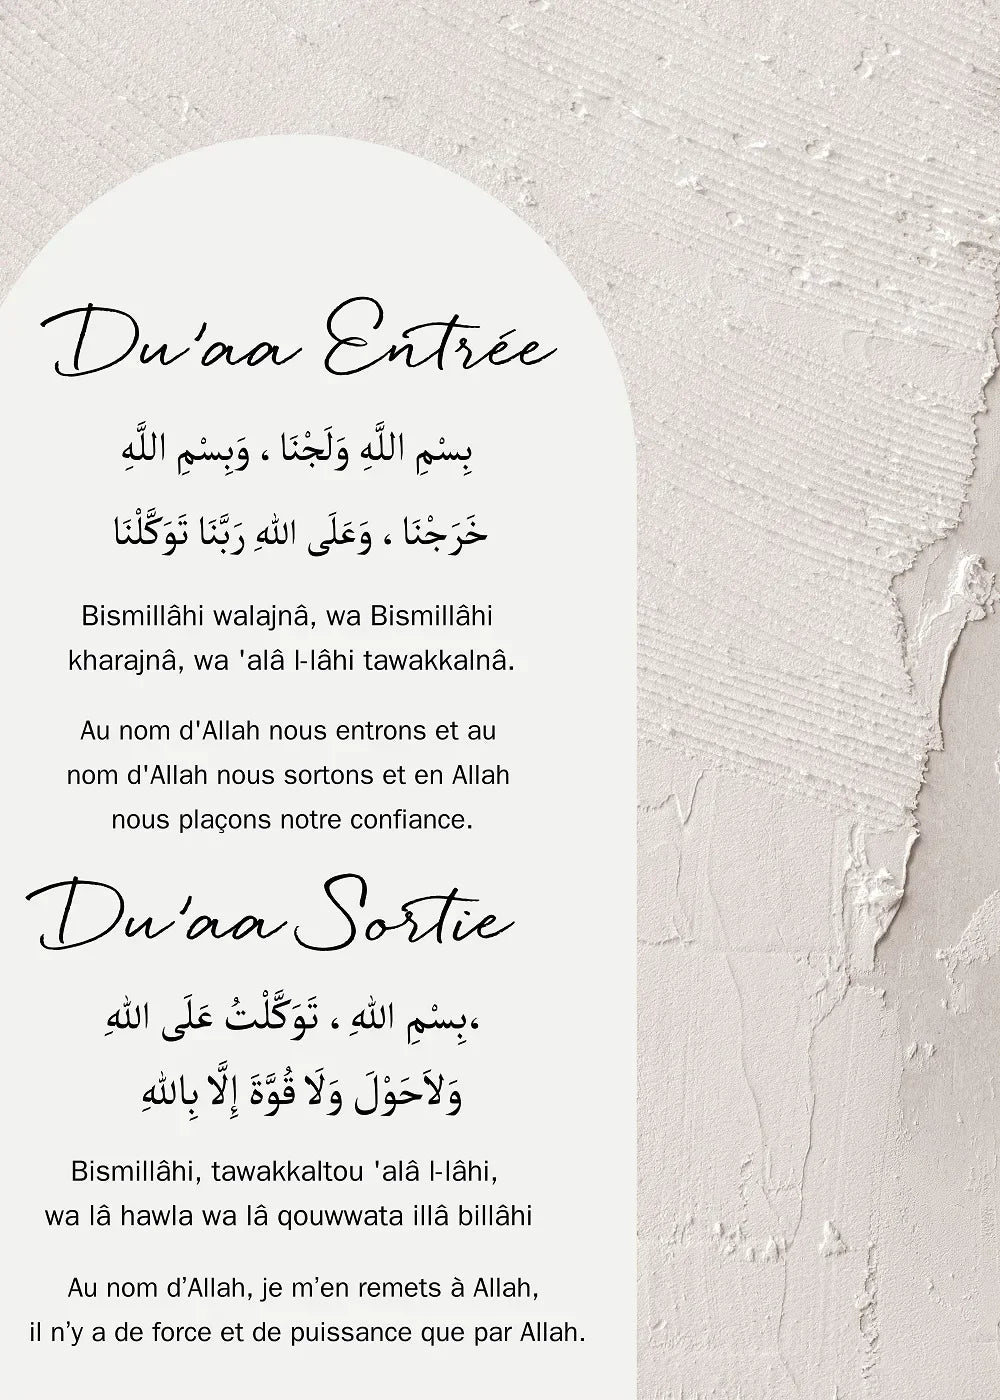 Du'aa Entrée
بِسْمِ اللَّهِ وَلَجْنَا ، وَبِسْمِ اللَّهِ
خَرَجْنَا ، وَعَلَى اللهِ رَبَّنَا تَوَكَّلْنَا
Bismillâhi walajnâ, wa Bismillâhi
kharajnâ, wa 'alâ l-lâhi tawakkalnâ.
Au nom d'Allah nous entrons et au
nom d'Allah nous sortons et en Allah
nous plaçons notre confiance.
Du'aa Sortie
،بِسْمِ اللهِ ، تَوَكَّلْتُ عَلَى اللهِ
وَلاَحَوْلَ وَلَا قُوَّةَ إِلَّا بِاللهِ
Bismillâhi, tawakkaltou 'alâ l-lâhi,
wa lâ hawla wa lâ qouwwata illâ billâhi
Au nom d’Allah, je m’en remets à Allah,
il n’y a de force et de puissance que par Allah.